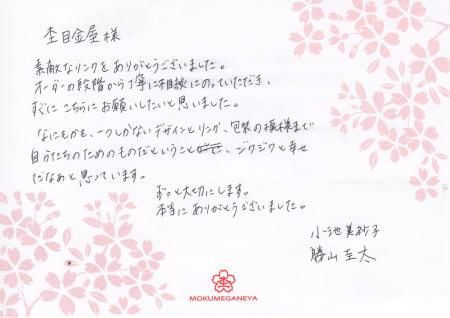 杢目金屋様
素敵なリングをありがとうございました。
オーダーの段階から丁寧に相談にのっていただき、
すぐにこちらにお願いしたいと思いました。
なにもかも、一つしかないデザインとリング、包装の模様まで
自分たちのためのものだということ、ジワジワと幸せ
だなぁと思っています。
ずっと大切にします。
本当にありがとうございました。
小池美紗子
勝山至太
MOKUMEGANEYA